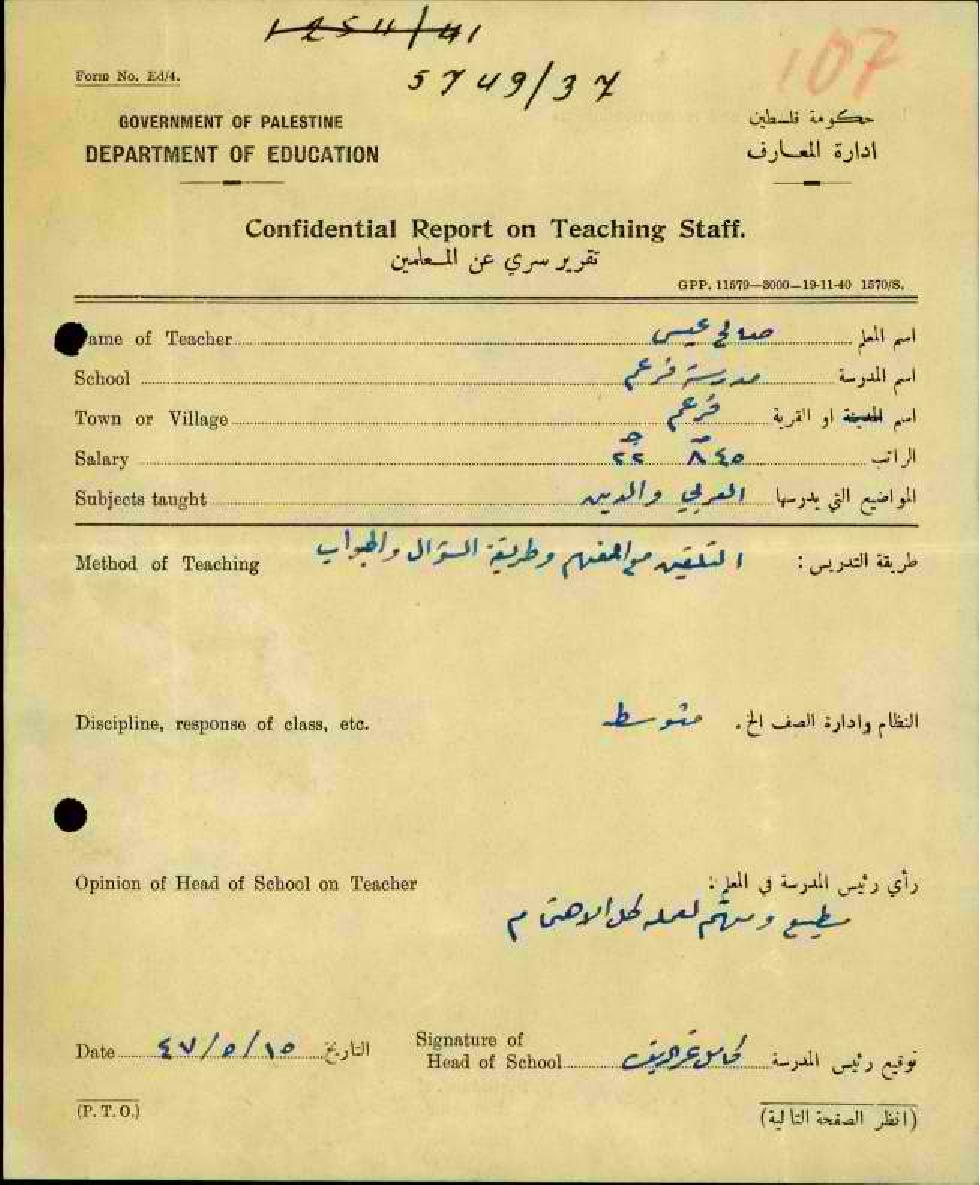 1254/41
5749/37
107
Form No. Ed/4.
GOVERNMENT OF PALESTINE
حكومة فلسطين
DEPARTMENT OF EDUCATION
ادارة المعارف
Confidential Report on Teaching Staff.
تقرير سري عن المعلمين
GPP. 11679—3000—19-11-40 1570/S.
ame of Teacher صالح عيسى اسم المعلم
School مدرسة فرعم اسم المدرسة
Town or Village فرعم اسم المدينة او القرية
Salary ٨٤٥ ٢٢ الراتب
Subjects taught العربي والدين المواضيع التي يدرسها
Method of Teaching التلقين مع التفهيم وطريقة السؤال والجواب طريقة التدريس :
Discipline, response of class, etc. متوسط النظام وادارة الصف الخ.
Opinion of Head of School on Teacher رأي رئيس المدرسة في المعلم:
مطيع ومهتم لعمله كل الاهتمام
Date ١٥/٥/٤٧ التاريخ
Signature of
Head of School كامل توقيع رئيس المدرسة
(P. T. O.)
(انظر الصفحة التالية)